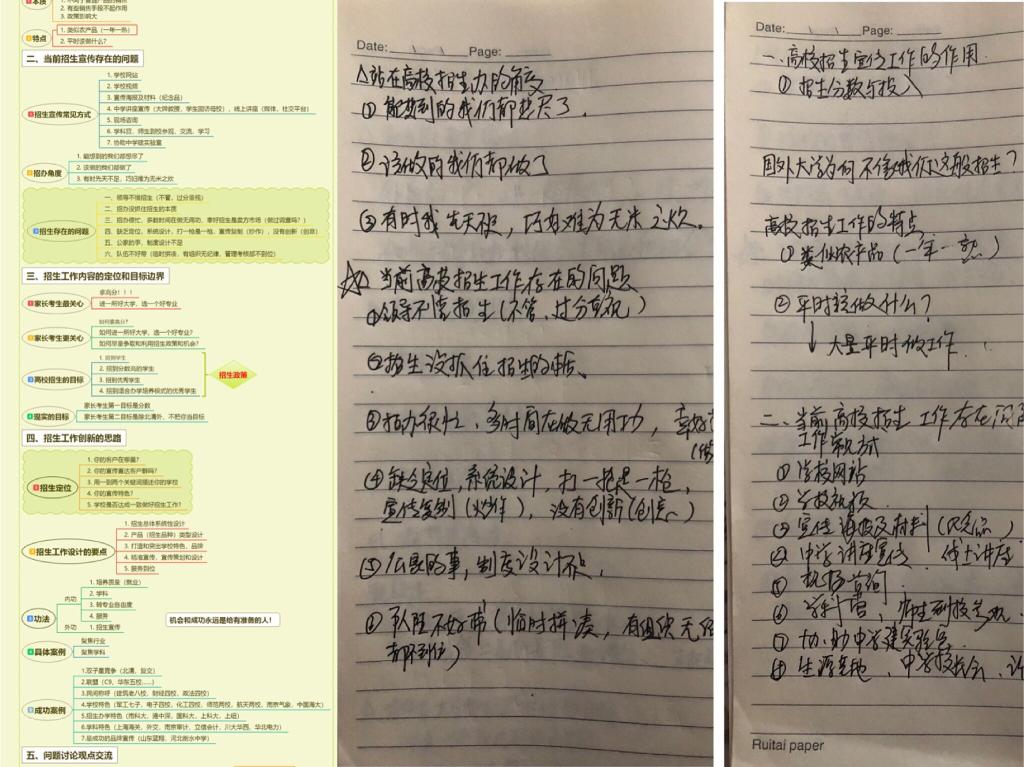 本质
2. 有些销售手段不起作用
3. 政策影响大
特点
1. 类似农产品（一年一熟）
2. 平时该做什么？
二、当前招生宣传存在的问题
1 招生宣传常见方式
1. 学校网站
2. 学校视频
3. 宣传海报及材料（纪念品）
4. 中学讲座宣传（大牌教授、学生回访母校），线上讲座（媒体、社交平台）
5. 现场咨询
6. 学科营、师生到校参观、交流、学习
7. 协助中学建实验室
2 招办角度
1. 能想到的我们都想尽了
2. 该做的我们都做了
3. 有时先天不足，巧妇难为无米之炊
3 招生存在的问题
一、领导不懂招生（不管，过分重视）
二、招办没抓住招生的本质
三、招办很忙，多数时间在做无用功，幸好招生是卖方市场（做过调查吗？）
四、缺乏定位、系统设计，打一枪是一枪，宣传复制（炒作），没有创新（创意）
五、公家的事，制度设计不足
六、队伍不好带（临时拼凑，有组织无纪律，管理考核都不到位）
三、招生工作内容的定位和目标边界
1 家长考生最关心
拿高分！！！
进一所好大学，选一个好专业
2 家长考生更关心
如何拿高分？
如何进一所好大学，选一个好专业？
如何尽量争取和利用招生政策和机会？
3 高校招生的目标
1. 招到学生
2. 招到分数高的学生
3. 招到优秀学生
4. 招到适合办学培养模式的优秀学生
招生政策
4 现实的目标
家长考生第一目标是分数
家长考生第二目标是除北清外，不把你当目标
四、招生工作创新的思路
1 招生定位
1. 你的客户在哪里？
2. 你的宣传直达客户群吗？
3. 用一到两个关键词描述你的学校
4. 你的宣传特色？
5. 学校是否达成一致做好招生工作？
2 招生工作设计的要点
1. 招生总体系统性设计
2. 产品（招生品种）类型设计
3. 打造和突出学校特色、品牌
4. 精准宣传，宣传策划和设计
5. 服务到位
3 功法
内功
1. 培养质量（就业）
2. 学科
3. 转专业自由度
4. 服务
外功
1. 招生宣传
机会和成功永远是给有准备的人！
4 具体案例
聚焦行业
聚焦学科
5 成功案例
1.双子星竞争（北清、复交）
2.联盟（C9、华东五校……）
3.民间称呼（建筑老八校、财经四校、政法四校）
4.学校特色（军工七子、电子四校、化工四校、师范两校、航天两校、南京气象、中国海大）
5.招生办学特色（南科大、港中深、国科大、上科大、上纽）
6.学科特色（上海海关、外交、南京审计、立信会计、川大华西、华北电力）
7.总成功的品牌宣传（山东蓝翔、河北衡水中学）
五、问题讨论观点交流
Date: \ \ Page:
△站在高校招生办的角度
① 能想到的我们都想尽了.
② 该做的我们都做了
③ 有时我先天不足，巧妇难为无米之炊.
☆ 当前高校招生工作存在的问题
① 领导不懂招生（不管、过分重视）
② 招生没抓住招生的本质、
③ 招办很忙、多时间在做无用功，幸好
④ 缺乏定位，系统设计，打一枪是一枪，
宣传复制（炒作），没有创新（创意）
⑤ 公家的事，制度设计不足.
⑥ 队伍不好带（临时拼凑，有组织无纪
都不到位）
Date: \ \ Page:
一、高校招生宣传工作的作用
① 招生分数与投入
国外大学为何不像我们这般招生？
高校招生工作的特点
① 类似农产品（一年一熟）
② 平时该做什么？
大量平时的工作.
二、当前高校招生工作存在问
工作常见方式
① 学校网站
② 学校视频
③ 宣传海报及材料（纪念品）
④ 中学讲座宣传、博士讲座
⑤ 现场咨询
⑥ 学科营、师生到校参观.
⑦ 协助中学建实验室
⑧ 生源基地、中学校长会、
Ruitai paper